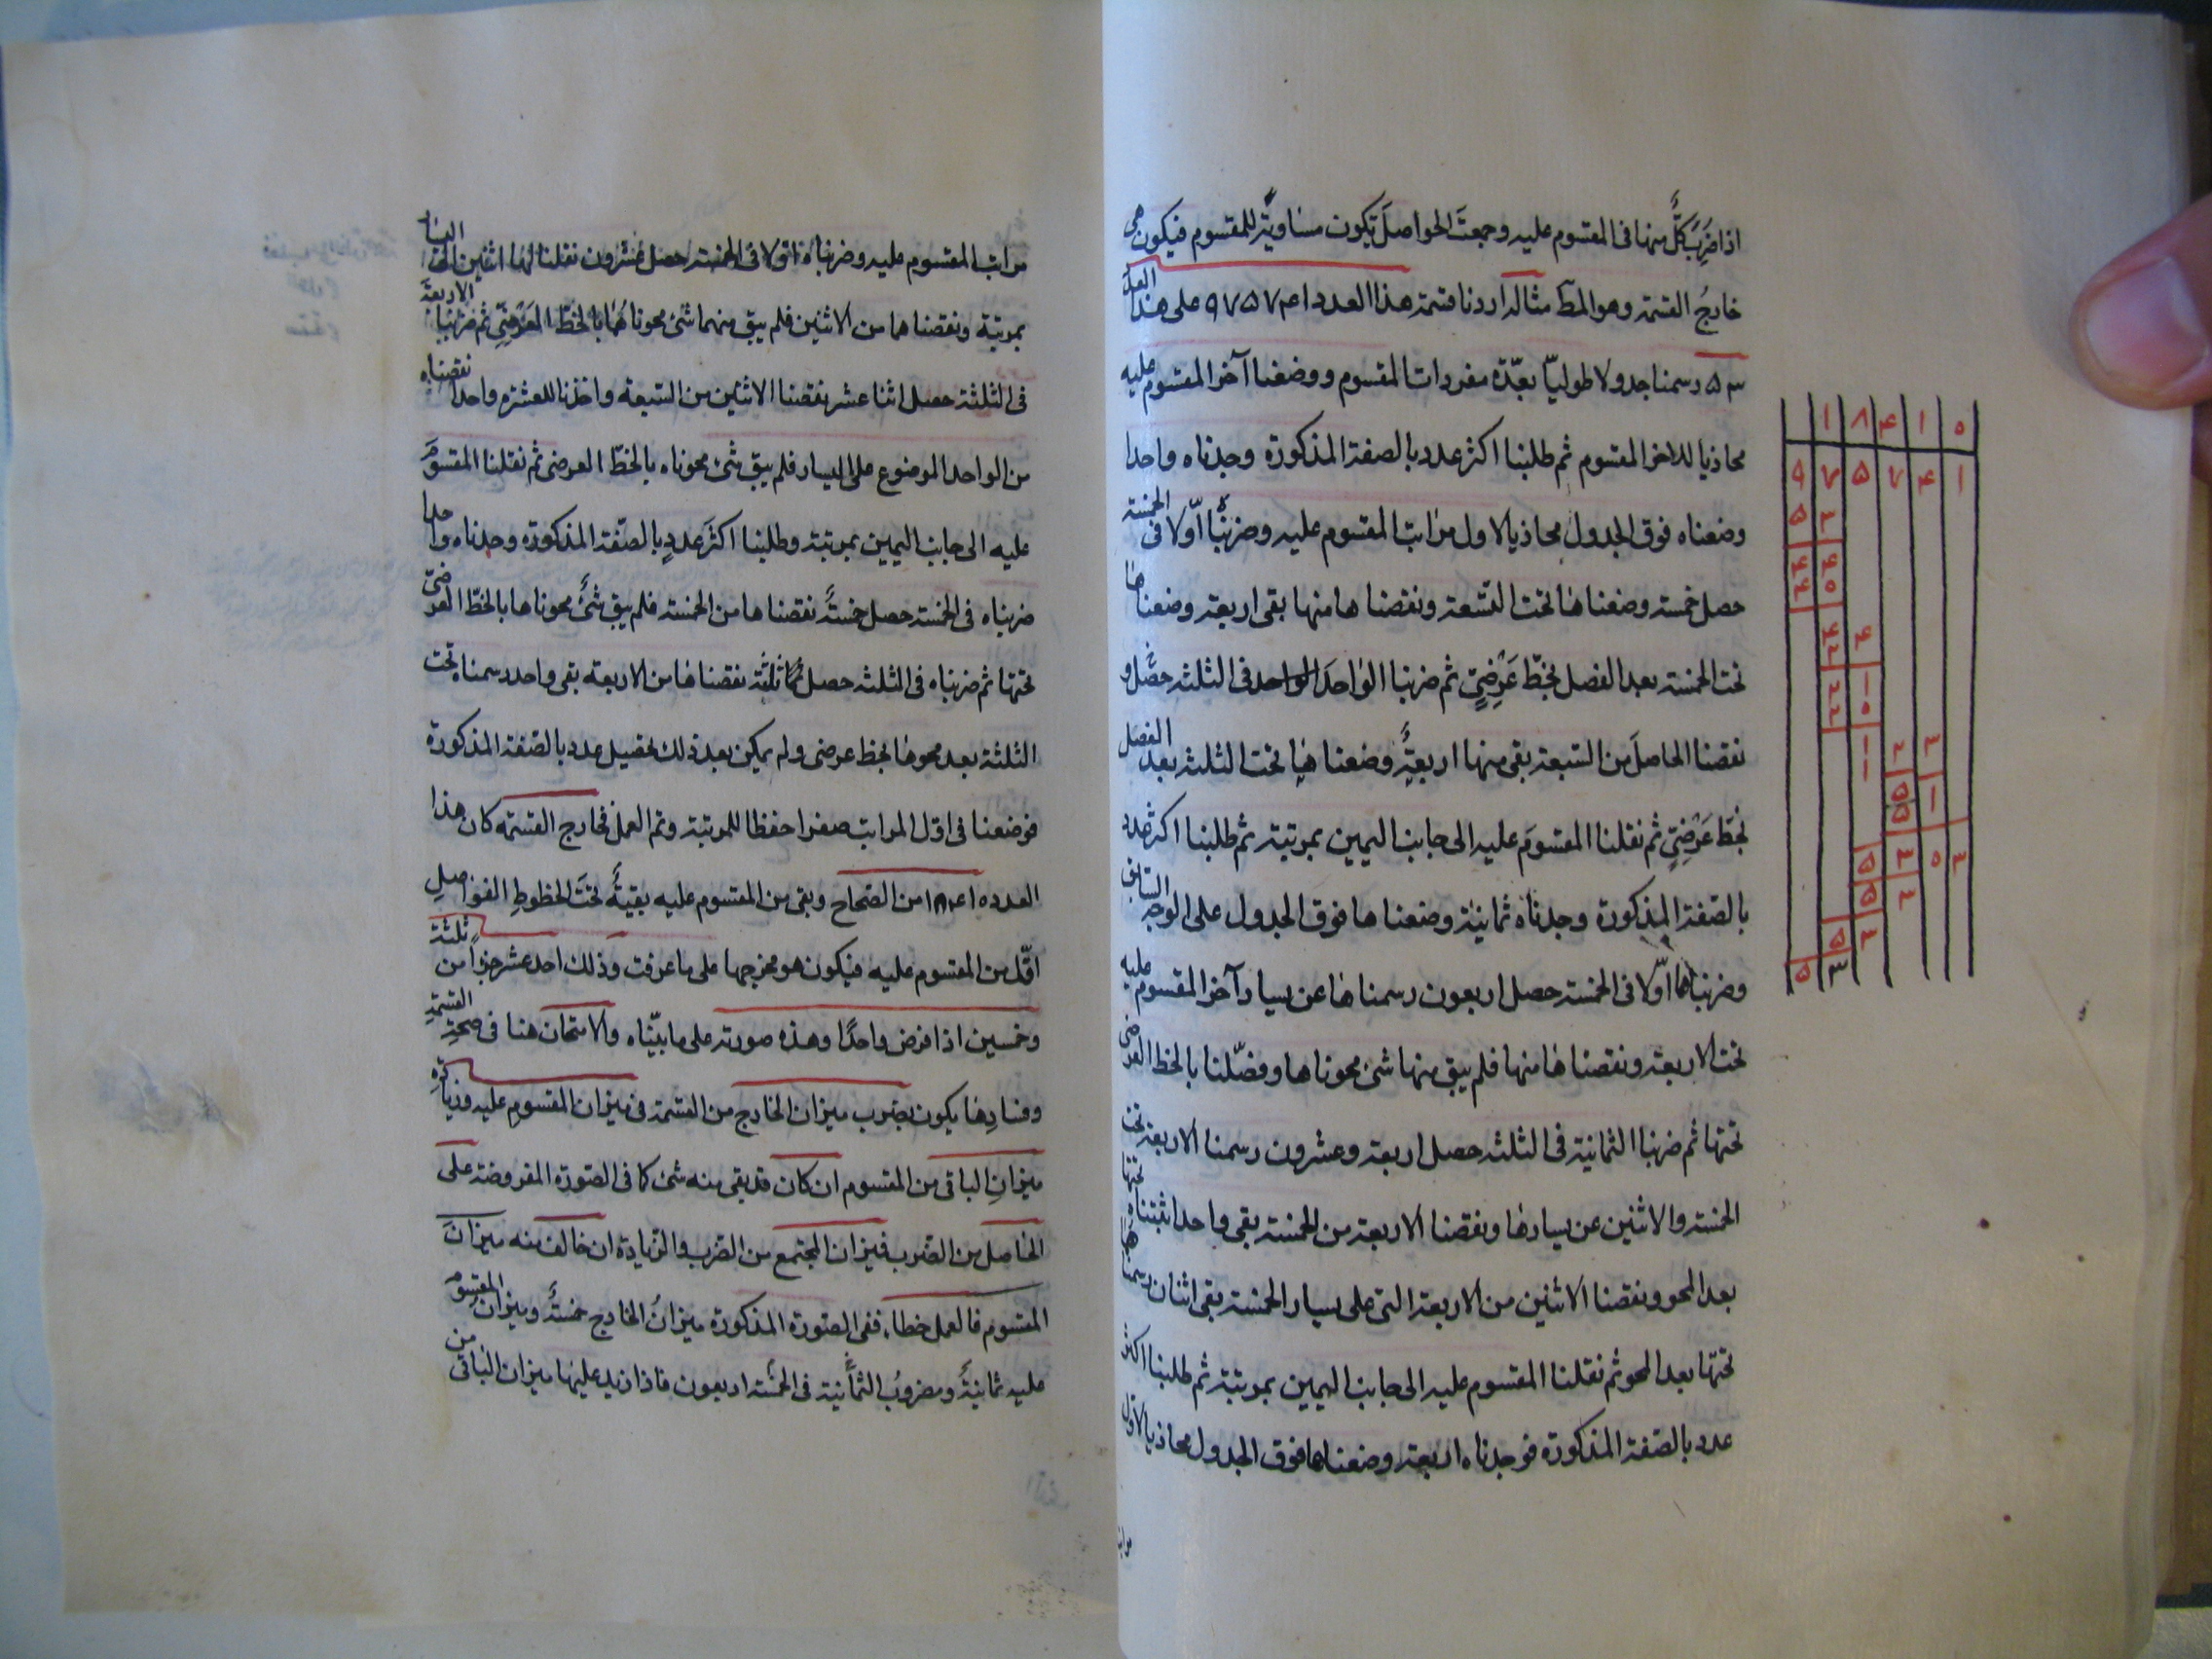 اذا ضربت كلّ منها فى المقسوم عليه وجمعت الحواصل تكون مساوية للمقسوم فيكون هى
خارج القسمة وهو المط مثاله اردنا قسمة هذا العدد ۹۷۵۷۴۱ على هذا العدد
۵۳ رسمنا جدولا طوليّا بعدّة مفردات المقسوم ووضعنا آخر المقسوم عليه
محاذيا للاخر المقسوم ثم طلبنا اكثر عدد بالصفة المذكورة وجدناه واحدا
وضعناه فوق الجدول محاذيا لاول مراتب المقسوم عليه وضربناه اوّلا فى الخمسة
حصل خمسة وضعناها تحت التسعة ونقصناها منها بقى اربعة وضعناها
تحت الخمسة بعد الفصل بخطّ عرضىّ ثم ضربنا الواحد الواحد فى الثلثة حصل و
نقصنا الحاصل من السبعة بقى منها اربعة وضعناها تحت الثلثة بعد الفصل
بخط عرضىّ ثم نقلنا المقسوم عليه الى جانب اليمين بمرتبة ثم طلبنا اكثر عدد
بالصّفة المذكورة وجدناه ثمانية وضعناها فوق الجدول على الوجه السابق
وضربناها اوّلا فى الخمسة حصل اربعون رسمناها عن يسار آخر المقسوم عليه
تحت الاربعة ونقصناها منها فلم يبق منها شئ محوناها وفصّلنا بالخط العرضى
تحتها ثم ضربنا الثمانية فى الثلثة حصل اربعة وعشرون رسمنا الاربعة تحت
الخمسة والاثنين عن يسارها ونقصنا الاربعة من الخمسة بقى واحد اثبتناه تحتها
بعد المحو ونقصنا الاثنين من الاربعة التى على يسار الخمسة بقى اثنان رسمناها
تحتها بعد المحو ثم نقلنا المقسوم عليه الى جانب اليمين بمرتبة ثم طلبنا اكثر
عدد بالصّفة المذكورة فوجدناه اربعة وضعناها فوق الجدول محاذيا لاول
۱ ۸ ۴ ۱ ۰
۹ ۷ ۵ ۷ ۴ ۱
۵ ۳
۴ ۴
۴ ۰
۴ ۴
۲ ۱
۲ ۰
۱ ۲ ۳
۱ ۵ ۱
۵
۵ ۳ ۰ ۳
۵ ۳
۵ ۳
۵ ۳
مراتب المقسوم عليه وضربناه اوّلا فى الخمسة حصل عشرون نقلنا لهما اثنين الى اليسار
بمرتبة ونقصناهما من الاثنين فلم يبق منهما شئ محوناهما بالخطّ العرضىّ ثم ضربنا الاربعة
فى الثلثة حصل اثنا عشر نقصنا الاثنين من السبعة واخذنا للعشرة واحدا نقصناه
من الواحد الموضوع على اليسار فلم يبق شئ محوناه بالخطّ العرضى ثم نقلنا المقسوم
عليه الى جانب اليمين بمرتبة وطلبنا اكثر عدد بالصّفة المذكورة وجدناه واحدا
ضربناه فى الخمسة حصل خمسة نقصناها من الخمسة فلم يبق شئ محوناها بالخطّ العرضىّ
تحتها ثم ضربناه فى الثلثة حصل ثلثة نقصناها من الاربعة بقى واحد رسمناه تحت
الثلثة بعد محوها بخط عرضى ولم يمكن بعد ذلك تحصيل عدد بالصّفة المذكورة
فوضعنا فى اوّل المراتب صفرا حفظا للمرتبة وتم العمل فخارج القسمة كان هذا
العدد ۱۸۴۱۰ من الصّحاح وبقى من المقسوم عليه بقية تحت الخطوط الفواصل
اقلّ من المقسوم عليه فيكون هو مخرجها على ما عرفت وذلك احد عشر جزءا من ثلثة
وخمسين اذا فرض واحدًا وهذه صورته على ما بيّناه والامتحان هنا فى صحة القسمة
وفسادها يكون بضرب ميزان الخارج من القسمة فى ميزان المقسوم عليه وزيادة
ميزان الباقى من المقسوم ان كان قد بقى منه شئ كما فى الصّورة المفروضة على
الحاصل من الضرب فميزان المجتمع من الضرب والزيادة ان خالف منه ميزان
المقسوم فالعمل خطاء ففى الصّورة المذكورة ميزان الخارج خمسة وميزان المقسوم
عليه ثمانية ومضروب الثمانية فى الخمسة اربعون فاذا زيد عليها ميزان الباقى من